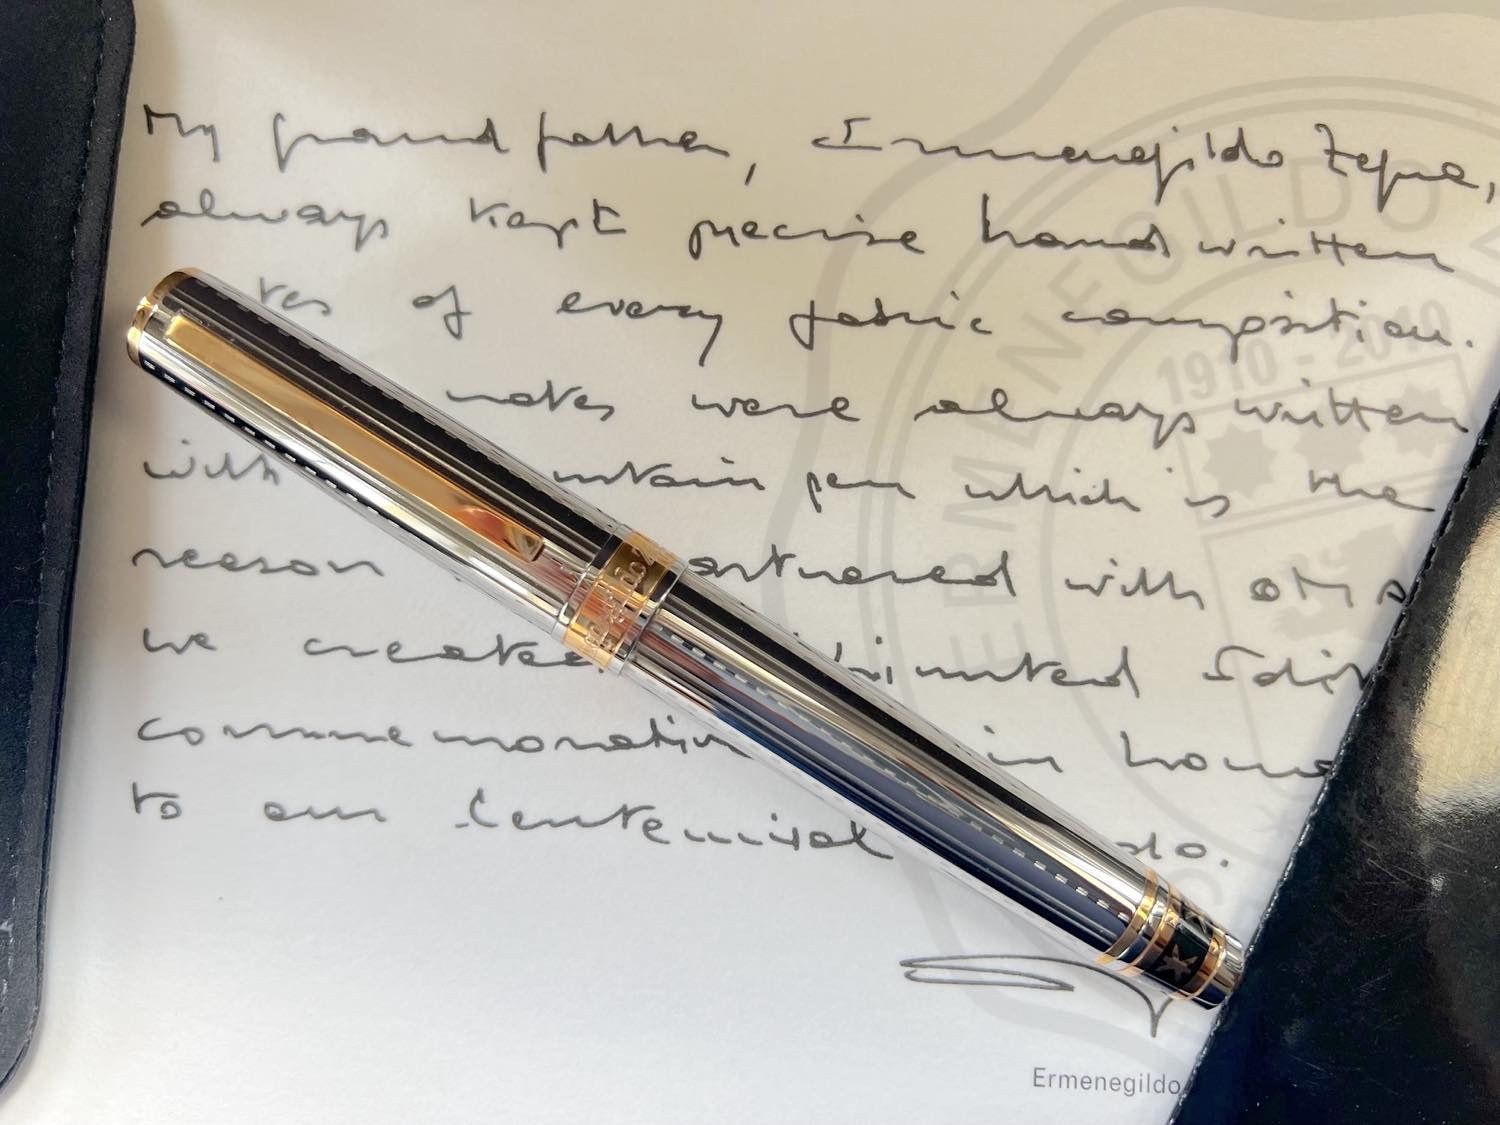 My grandfather, Ermenegildo Zegna,
always kept precise handwritten
tes of every fabric composition.
notes were always written
with ntain pen which is the
reason artnered with OMA
we created limited Edit
commemorativ in hono
to our Centennial
ERMENEGILDO
1910 - 2010
Ermenegildo